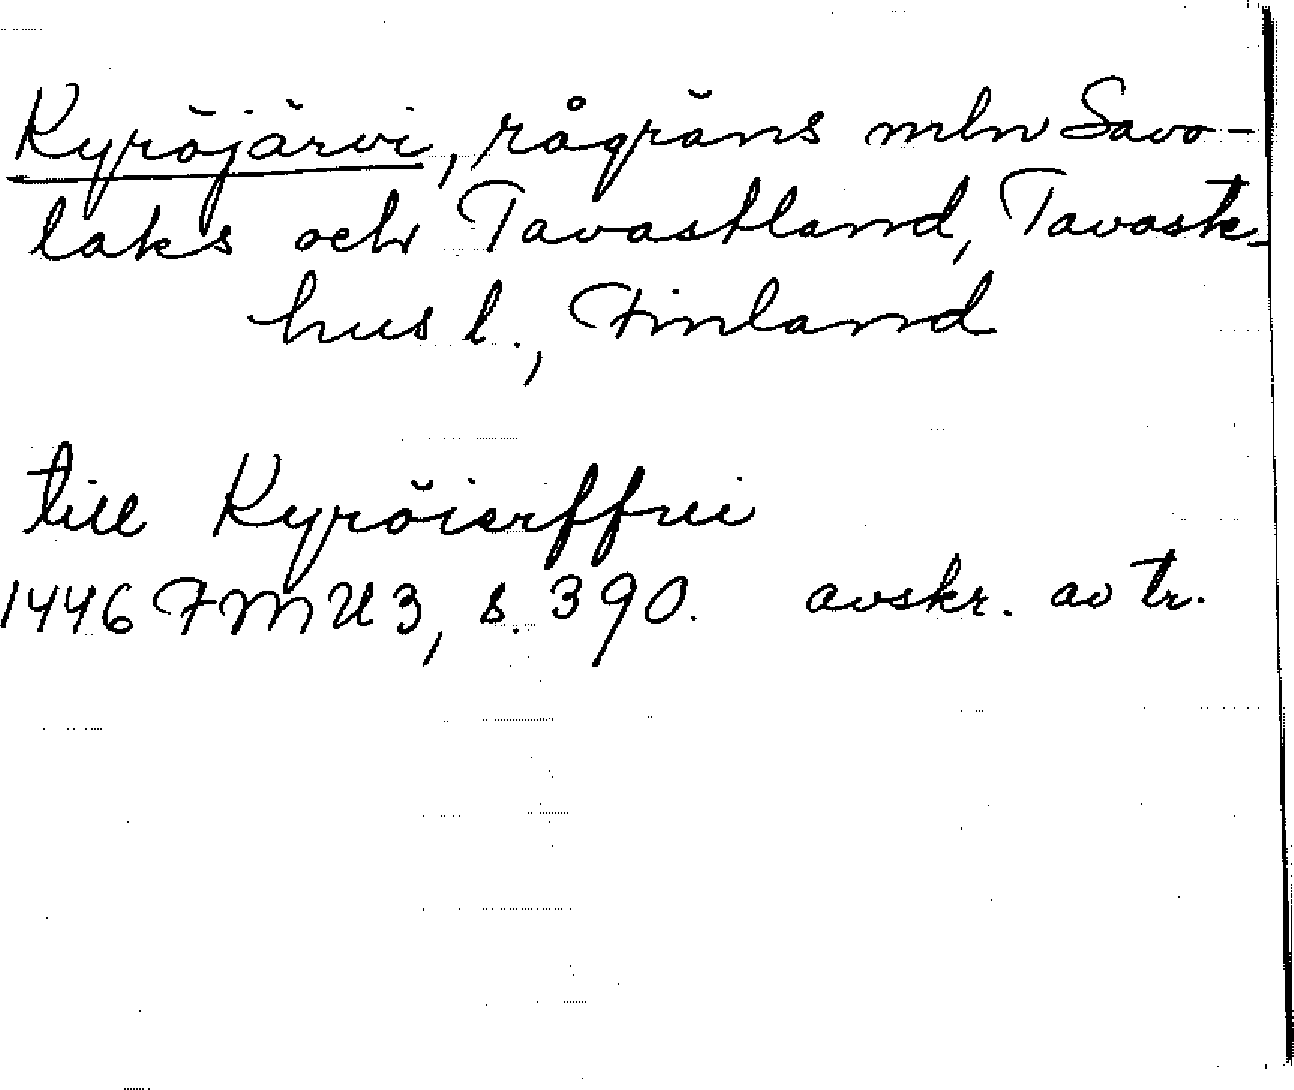 Kyröjärvi, rågräns mln Savo-
laks och Tavastland, Tavast-
hus l., Finland
till Kyröierffui
1446 FMU 3, s. 390. avskr. av tr.